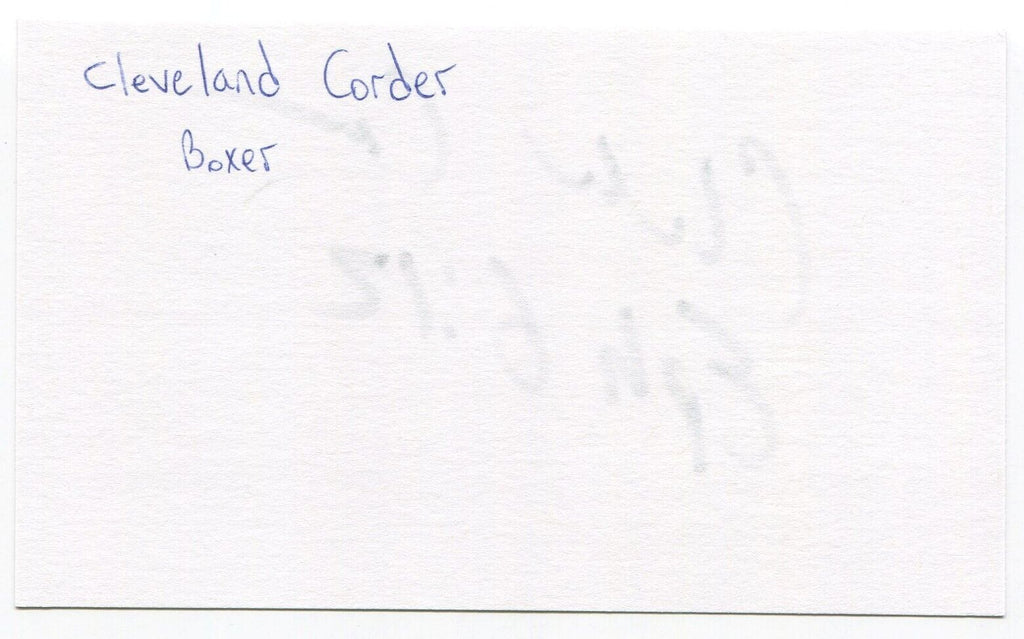 Cleveland Corder
Boxer